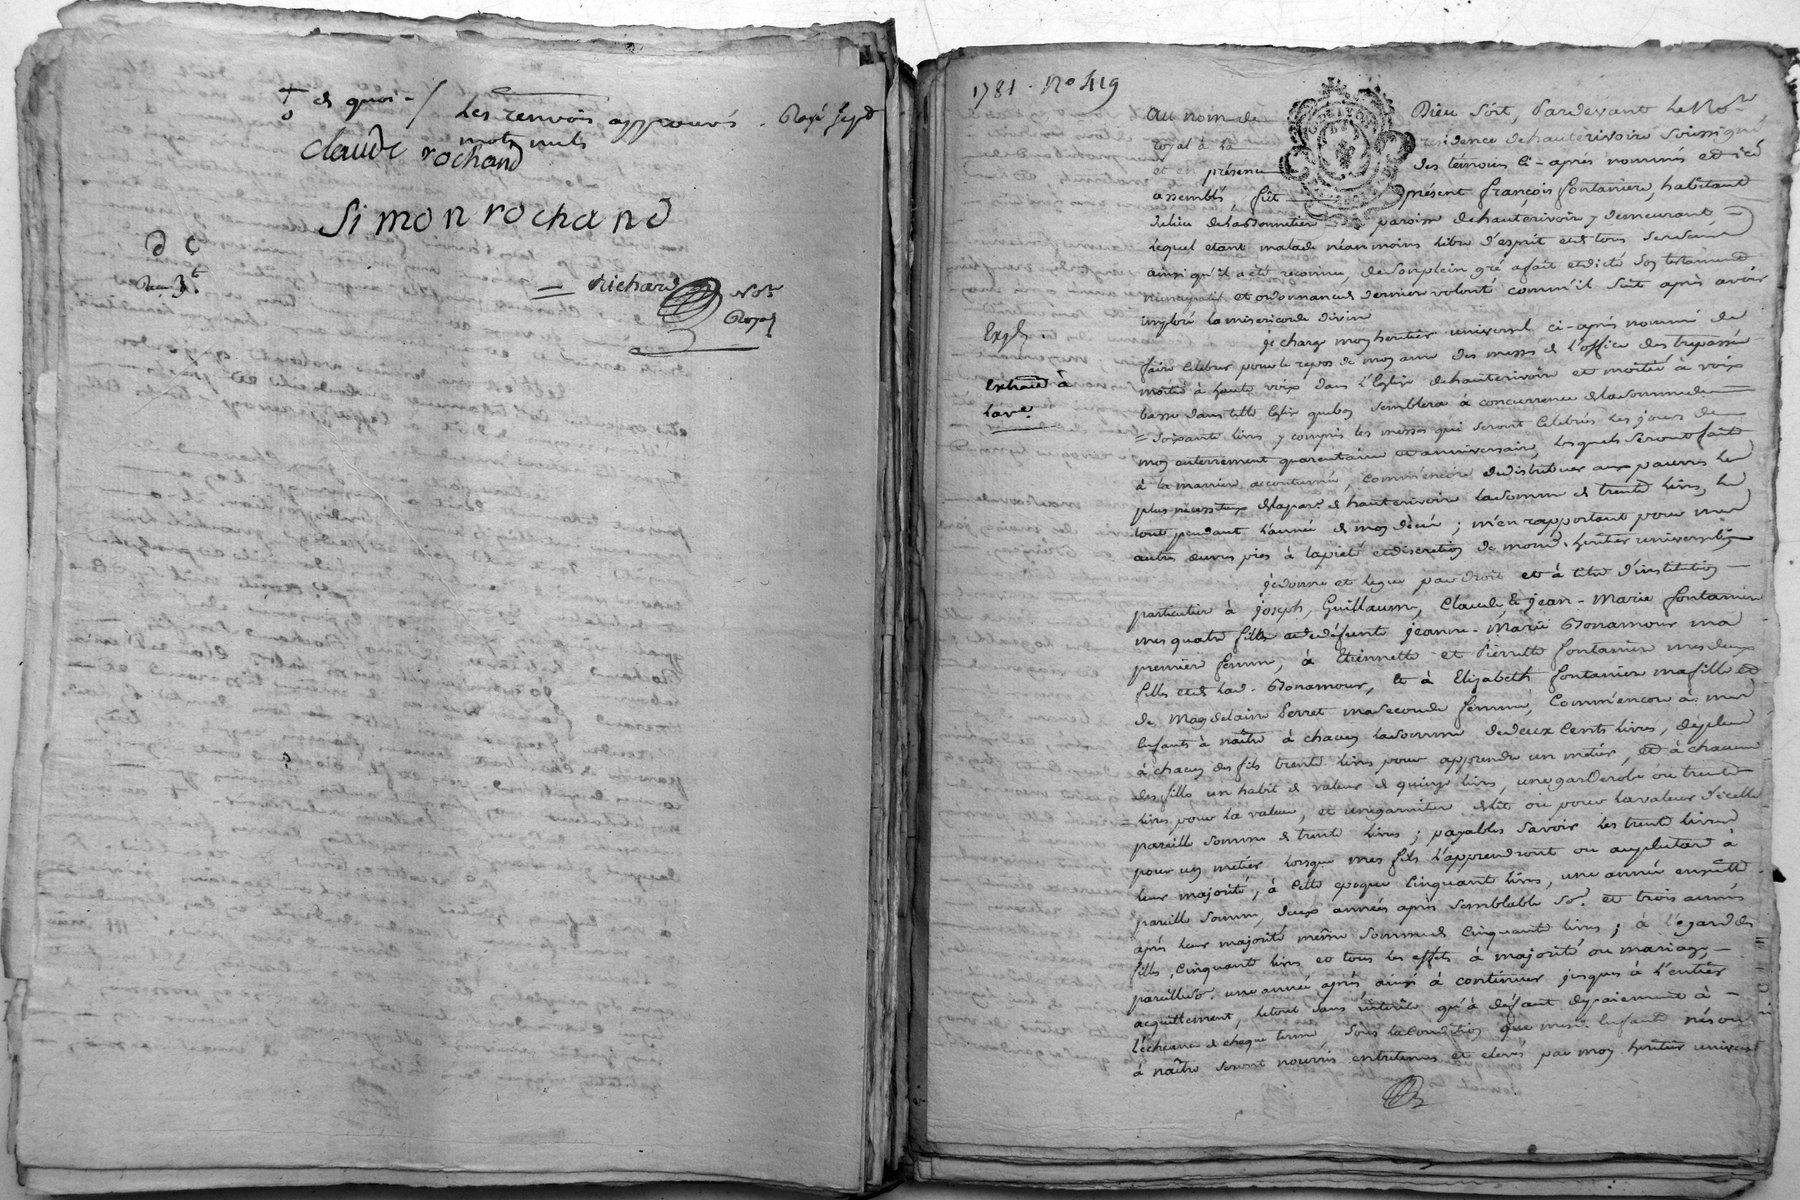 et quoi - / Les renvois approuvés. Rayé sept
mots nuls
claude rochand
Simon rochand
Richard Not.re
Royal
1781. No 419
Expé.
extrait à
lad.e
Au nom de Dieu soit, Pardevant le No.re
royal à la résidence de hauterivoire soussigné
et en présence des témoins ci-après nommés et ici
assemblés, fut présent françois fontaniere, habitant
du lieu de paroisse de hauterivoir y demeurant,
lequel etant malade néanmoins libre d'esprit et de tous ses sens
ainsi qu'il a été reconnu, de son plein gré a fait et dicté son testament
nuncupatif et ordonnance de derniere volonté comm'il suit après avoir
imploré la misericorde divine
je charge mon heritier universel ci-après nommé de
faire celebrer pour le repos de mon ame des messes de l'office des trepassés
moitié à haute voix dans l'Eglise de hauterivoire et moitié a voix
basse dans telle Eglise que bon semblera à concurrence de la somme de
soixante livres y compris les messes qui seront celebrées les jours de
mon enterrement quarantaine et anniversaire, lesquels seront faits
à la maniere accoutumée, comm'encore de distribuer aux pauvres les
plus nécessiteux de la par.se de hauterivoire la somme de trente livres, le
tout pendant l'année de mon décès; m'en rapportant pour mes
autres œuvres pies à la pieté et discretion de mond. heritier universel
je donne et legue par droit et à titre d'institution
particuliere à joseph, Guillaume, Claude & jean-Marie fontaniere
mes quatre fils et de défunte jeanne-Marie Bonamour ma
premiere femme, à Etiennette et Pierrette fontaniere mes deux
filles et de lad. Bonamour, et à Elizabeth fontaniere ma fille et
de Magdelaine Perret ma seconde femme, comm'encore à mes
enfants à naître à chacun la somme de deux cents livres, de plus
à chacun des fils trente livres pour apprendre un métier, et à chacune
des filles un habit de valeur de quinze livres, une garderobe ou trente
livres pour la valeur, et une garniture de lit ou pour la valeur d'icelle
pareille somme de trente livres; payables savoir les trente livres
pour un metier lorsque mes fils l'apprendront ou au plutard à
leur majorité, à cette epoque cinquante livres, une année ensuite
pareille somme, deux années après semblable so. et trois années
après leur majorité même somme de cinquante livres; à l'égard des
filles, cinquante livres et tous les effets à majorité ou mariage,
pareille so. une année après ainsi à continuer jusques à l'entier
acquittement, le tout sans interêts qu'à défaut de paiement à
l'échéance de chaque terme, sous la condition que mes. enfants nés ou
à naître seront nourris entretenus et elevés par mon heritier universel